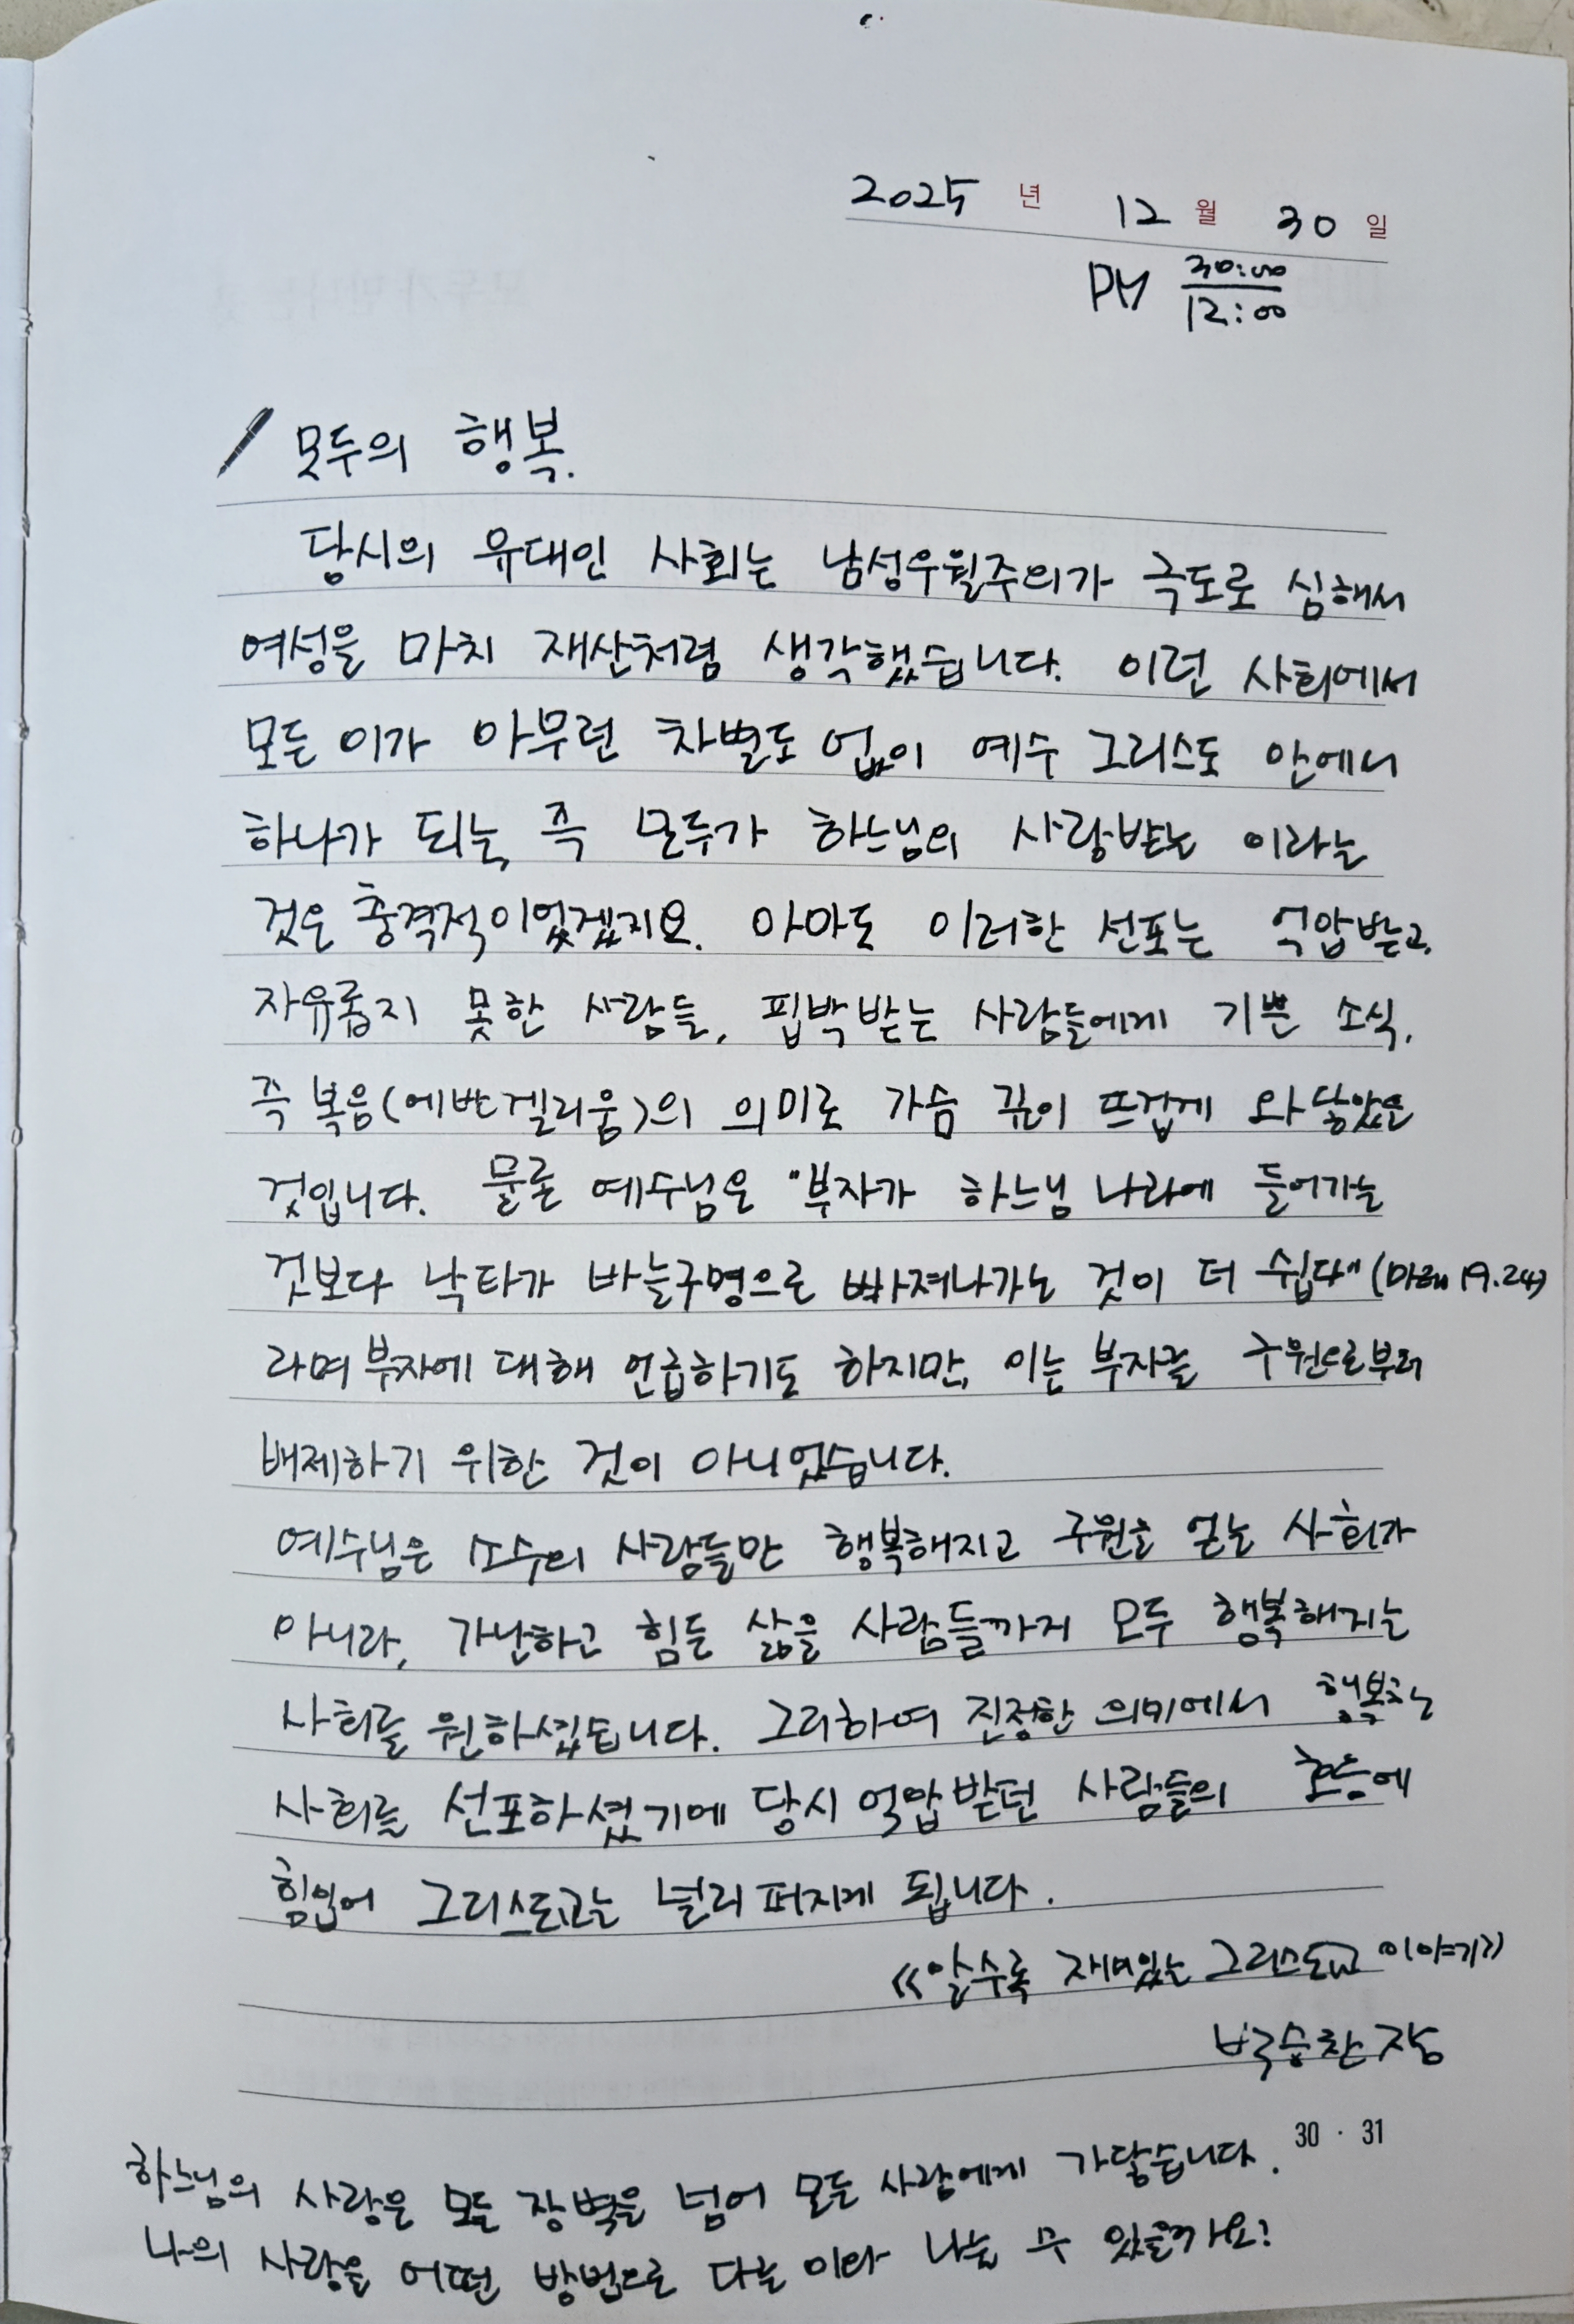 2025 년 12 월 30 일
PM 30:00
12:00
모두의 행복.
당시의 유대인 사회는 남성우월주의가 극도로 심해서
여성을 마치 재산처럼 생각했습니다. 이런 사회에서
모든 이가 아무런 차별도 없이 예수 그리스도 안에서
하나가 되는, 즉 모두가 하느님의 사랑받는 이라는
것은 충격적이었겠지요. 아마도 이러한 선포는 억압받고,
자유롭지 못한 사람들, 핍박받는 사람들에게 기쁜 소식,
즉 복음(에반겔리움)의 의미로 가슴 깊이 뜨겁게 와 닿았을
것입니다. 물론 예수님은 "부자가 하느님 나라에 들어가는
것보다 낙타가 바늘구멍으로 빠져나가는 것이 더 쉽다"(마태 19.24)
라며 부자에 대해 언급하기도 하지만, 이는 부자를 구원으로부터
배제하기 위한 것이 아니었습니다.
예수님은 소수의 사람들만 행복해지고 구원을 얻는 사회가
아니라, 가난하고 힘든 삶을 사람들까지 모두 행복해지는
사회를 원하셨습니다. 그리하여 진정한 의미에서 행복한
사회를 선포하셨기에 당시 억압받던 사람들의 호응에
힘입어 그리스도교는 널리 퍼지게 됩니다.
《알수록 재미있는 그리스도교 이야기》
박승찬 지음
30 · 31
하느님의 사랑은 모든 장벽을 넘어 모든 사람에게 가닿습니다.
나의 사랑을 어떤 방법으로 다른 이와 나눌 수 있을까요?